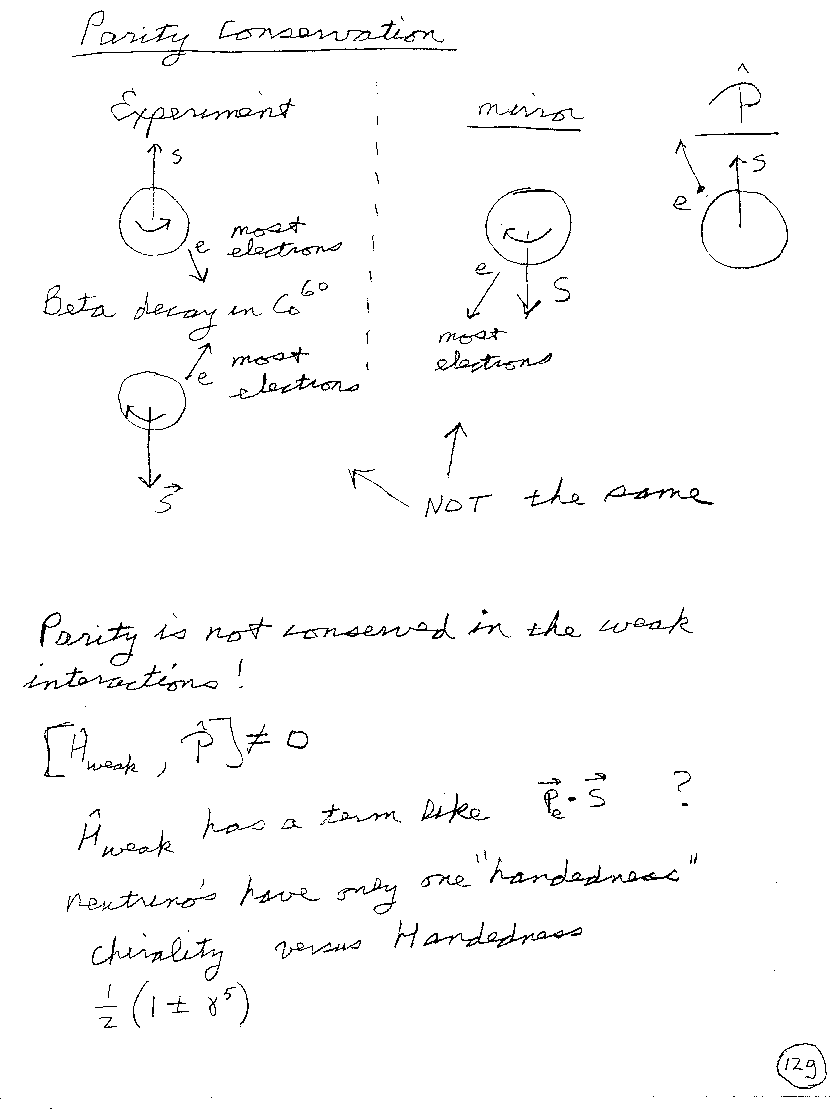 Parity Conservation
Experiment
mirror
P̂
S
S
e
e most
electrons
e
S
Beta decay in Co⁶⁰
most
electrons
e most
electrons
S⃗
NOT the same
Parity is not conserved in the weak
interactions!
[Ĥweak, P̂] ≠ 0
Ĥweak has a term like P⃗e·S⃗ ?
neutrino's have only one "handedness"
Chirality versus Handedness
½ (1 ± γ⁵)
129